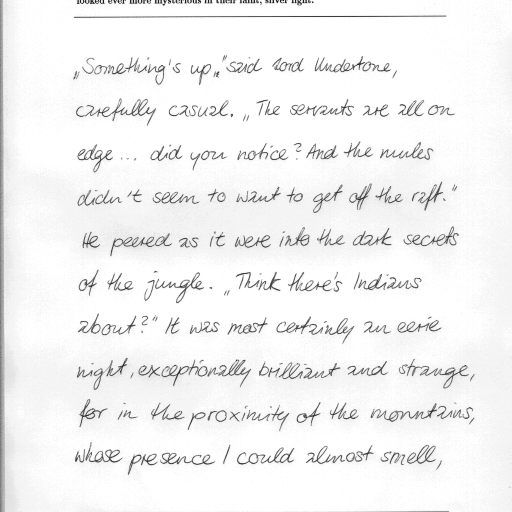 looked ever more mysterious in their faint, silver light.
„Something's up," said Lord Undertone,
carefully casual. „The servants are all on
edge ... did you notice? And the mules
didn't seem to want to get off the raft."
He peered as it were into the dark secrets
of the jungle. „Think there's Indians
about?" It was most certainly an eerie
night, exceptionally brilliant and strange,
for in the proximity of the mountains,
whose presence I could almost smell,